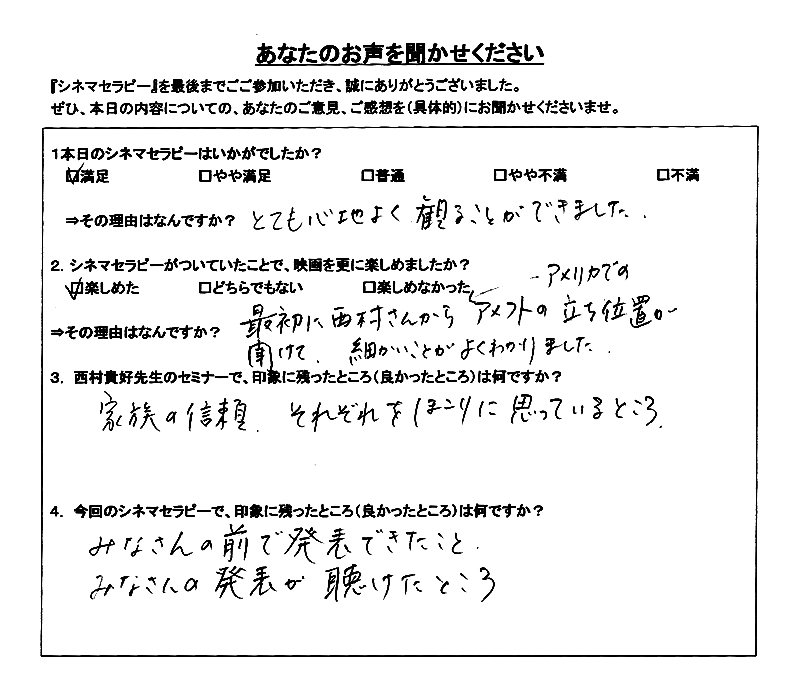 あなたのお声を聞かせください
『シネマセラピー』を最後までごご参加いただき、誠にありがとうございました。
ぜひ、本日の内容についての、あなたのご意見、ご感想を(具体的)にお聞かせくださいませ。
1本日のシネマセラピーはいかがでしたか？
☑満足 □やや満足 □普通 □やや不満 □不満
⇒その理由はなんですか？ とても心地よく観ることができました.
2. シネマセラピーがついていたことで、映画を更に楽しめましたか？
☑楽しめた □どちらでもない □楽しめなかった
アメリカでの
⇒その理由はなんですか？ 最初に西村さんから アメフトの立ち位置が
聞けて、細かいことがよくわかりました.
3. 西村貴好先生のセミナーで、印象に残ったところ(良かったところ)は何ですか？
家族の信頼. それぞれをほこりに思っているところ.
4. 今回のシネマセラピーで、印象に残ったところ(良かったところ)は何ですか？
みなさんの前で発表できたこと.
みなさんの発表が聴けたところ